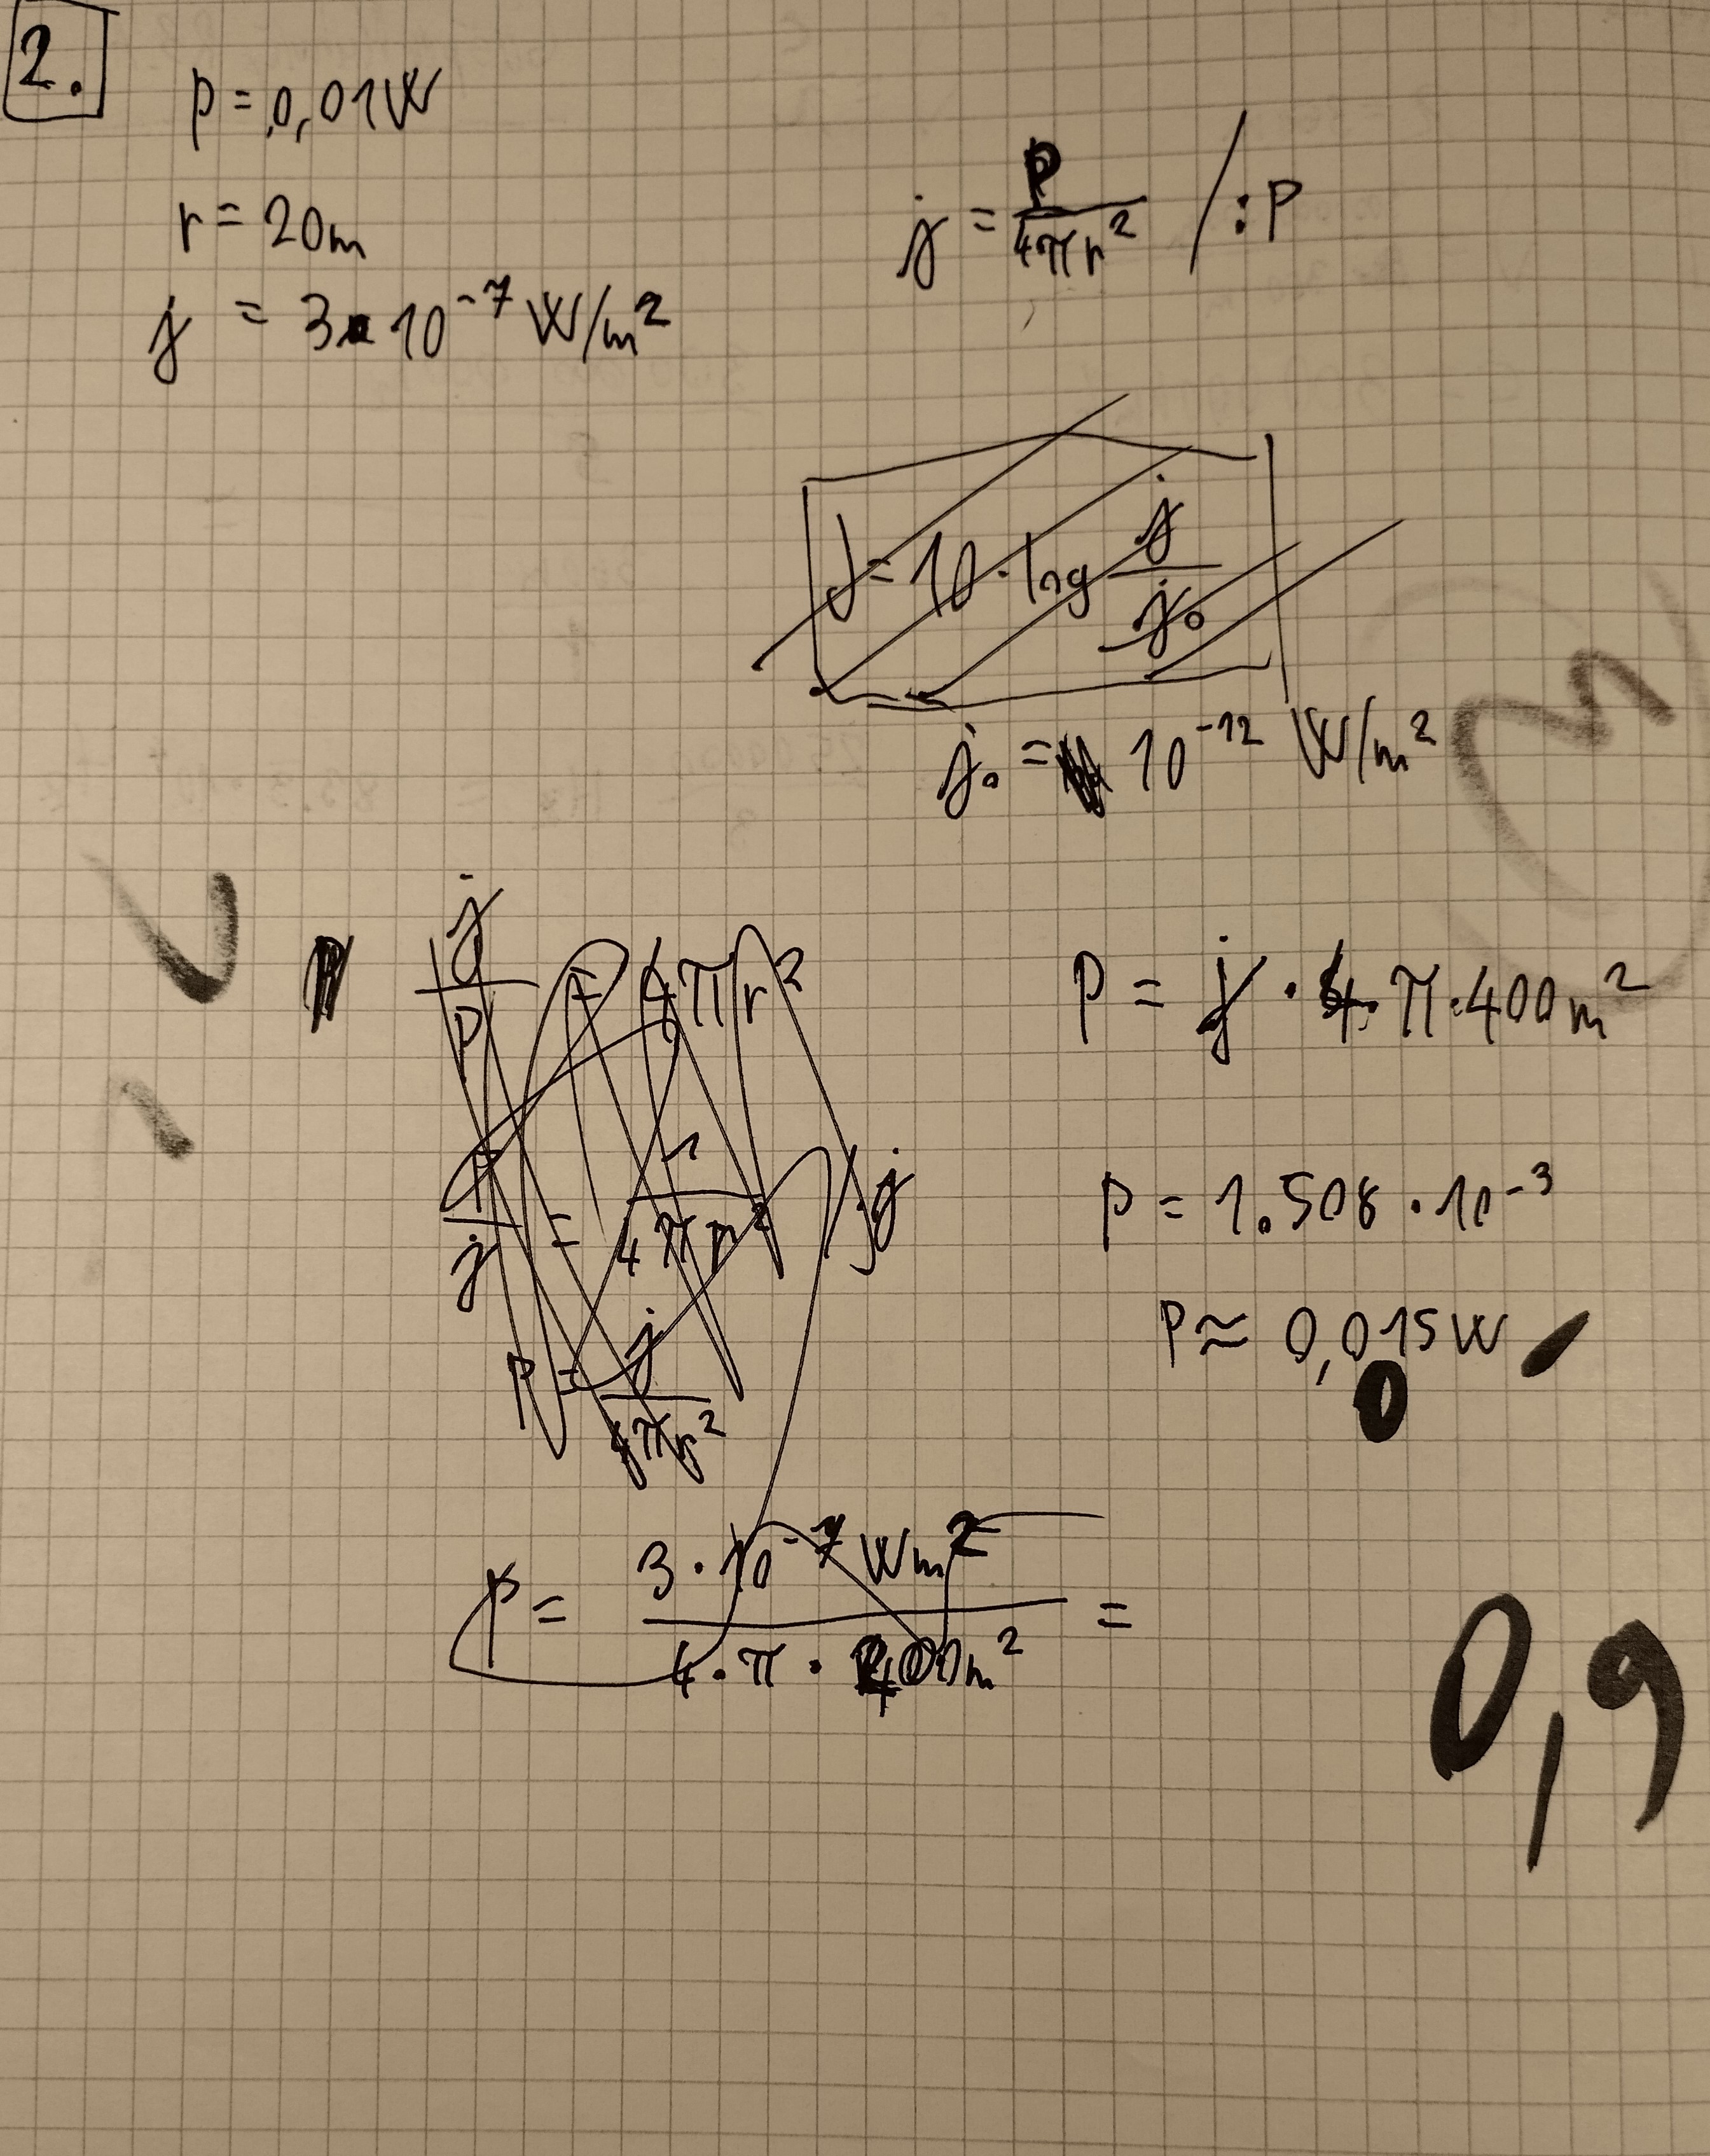 2.
p = 0,01W
r = 20m
j = 3 · 10⁻⁷ W/m²
j = P / 4πr² / :P
J = 10 · log j / j₀
j₀ = 10⁻¹² W/m²
j / P = 4πr²
P / j = 1 / 4πr² / · j
P = j / 4πr²
P = 3 · 10⁻⁷ Wm² / 4 · π · 400m² =
P = j · 4 · π · 400m²
P = 1.508 · 10⁻³
P ≈ 0,015W
0
0,9